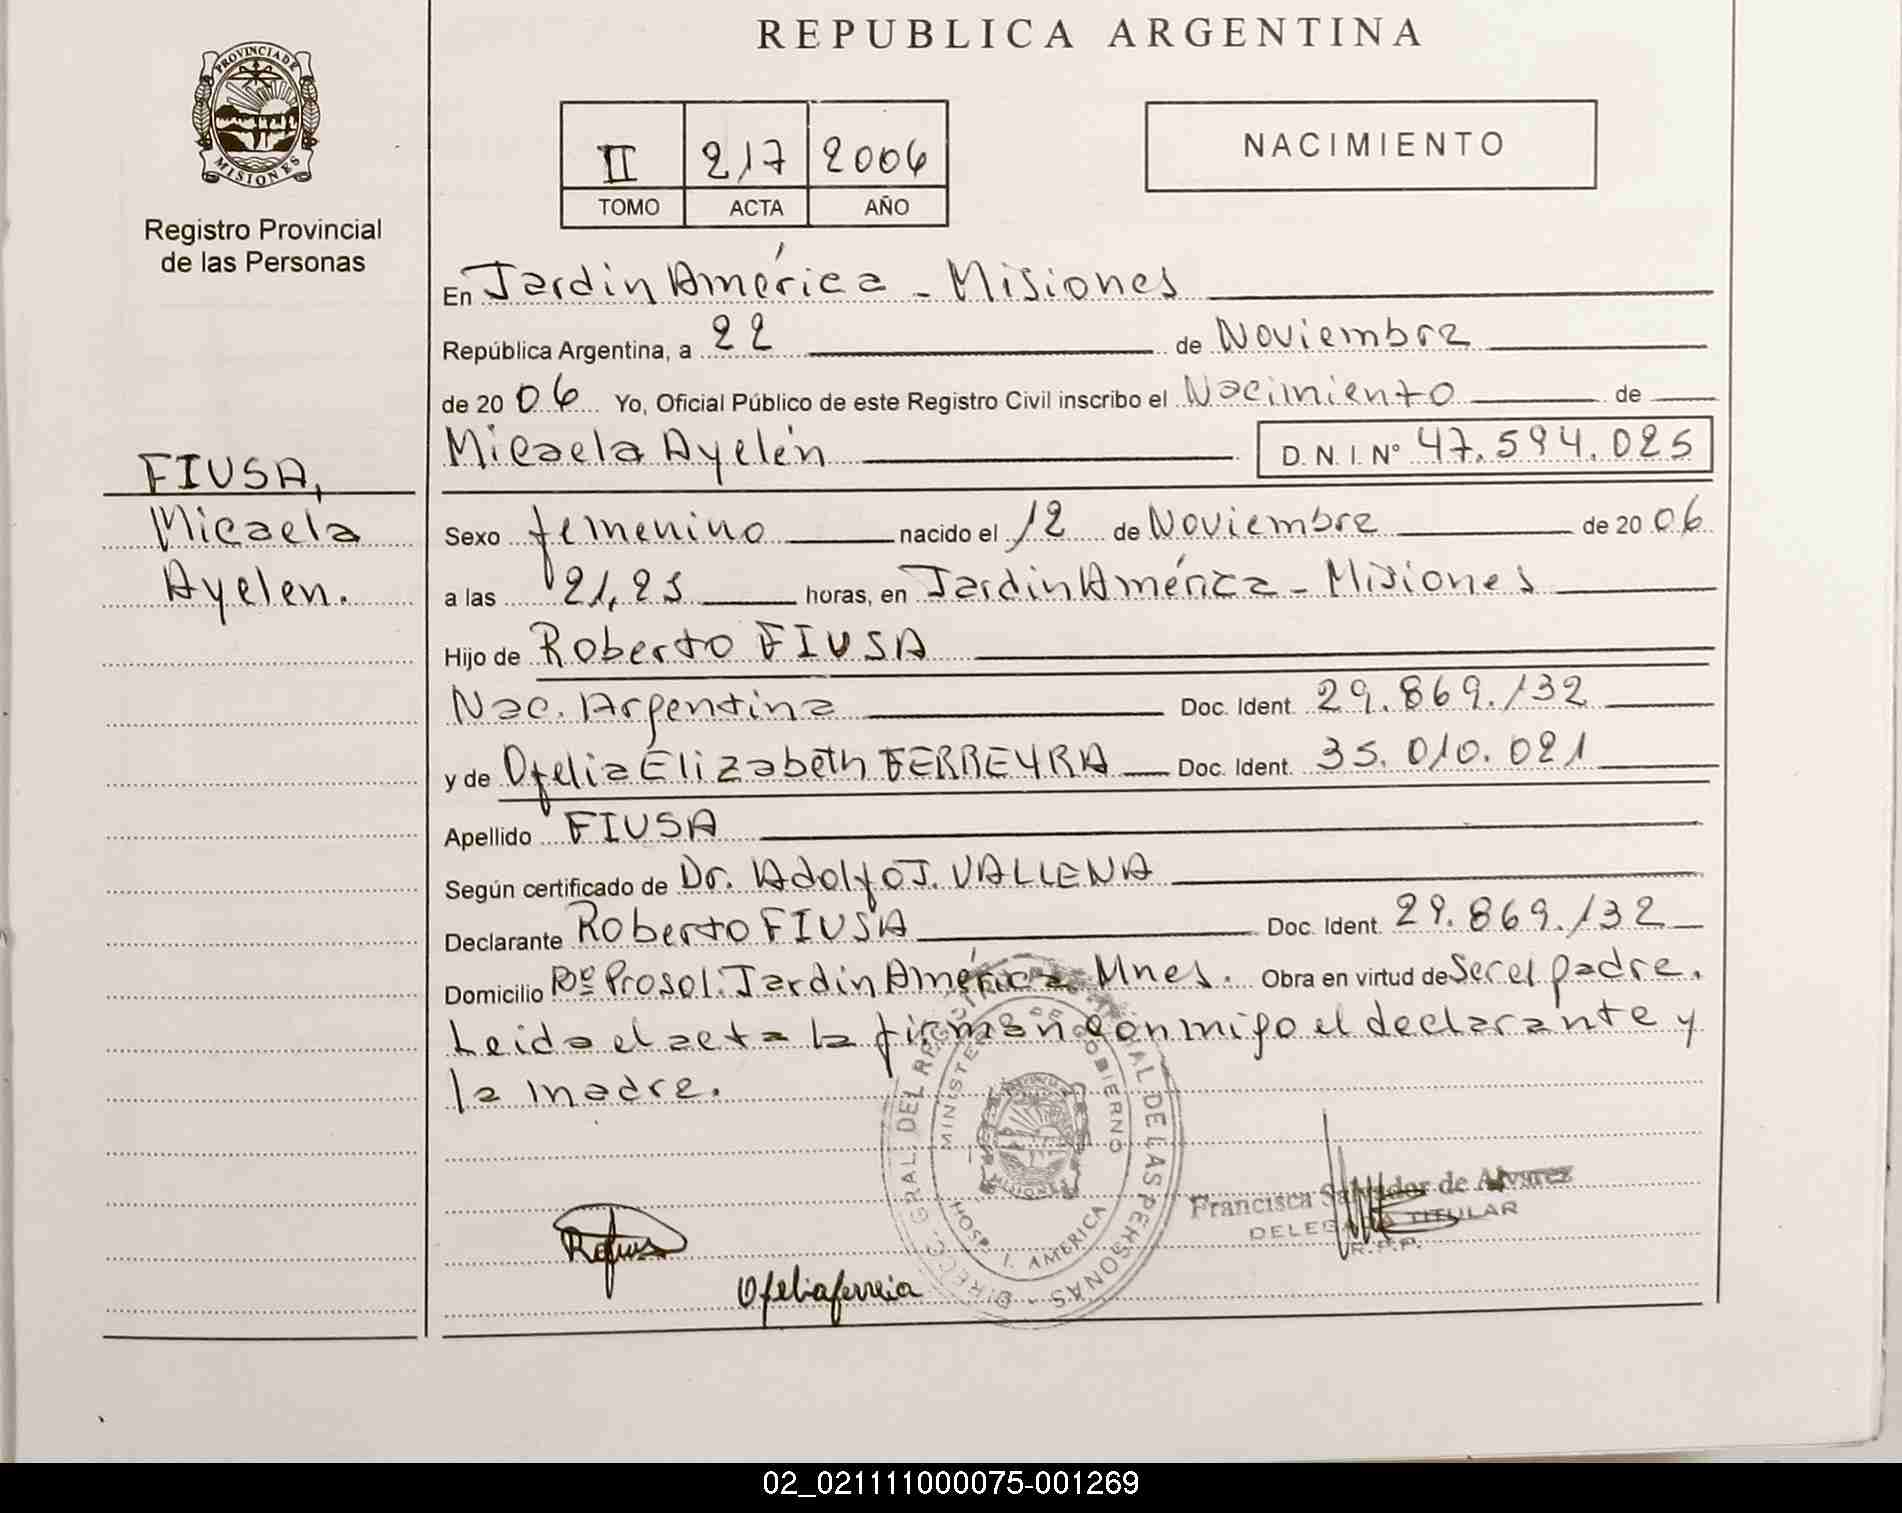 REPUBLICA ARGENTINA
PROVINCIA DE
MISIONES
Registro Provincial
de las Personas
II 217 2006
TOMO ACTA AÑO
NACIMIENTO
FIUSA,
Micaela
Ayelen.
En Jardin América - Misiones
República Argentina, a 22 de Noviembre
de 20 06 Yo, Oficial Público de este Registro Civil inscribo el Nacimiento de
Micaela Ayelén D. N. I. Nº 47.594.025
Sexo femenino nacido el 12 de Noviembre de 20 06
a las 21,25 horas, en Jardin América - Misiones
Hijo de Roberto FIUSA
Nac. Argentina Doc. Ident. 29.869.132
y de Ofelia Elizabeth FERREYRA Doc. Ident. 35.010.021
Apellido FIUSA
Según certificado de Dr. Adolfo J. VALLENA
Declarante Roberto FIUSA Doc. Ident. 29.869.132
Domicilio Bº Prosol. Jardin América Mnes. Obra en virtud de Ser el padre.
Leida el acta la firman conmigo el declarante y
la madre.
DIRECC. GRAL. DEL DE LAS PERSONAS
MINISTERIO DE GOBIERNO
HOSP. J. AMERICA
MISIONES
Francisca Salvador de Alvarez
DELEGADA TITULAR
R.P.P.
Ofeliaferreia
02_021111000075-001269